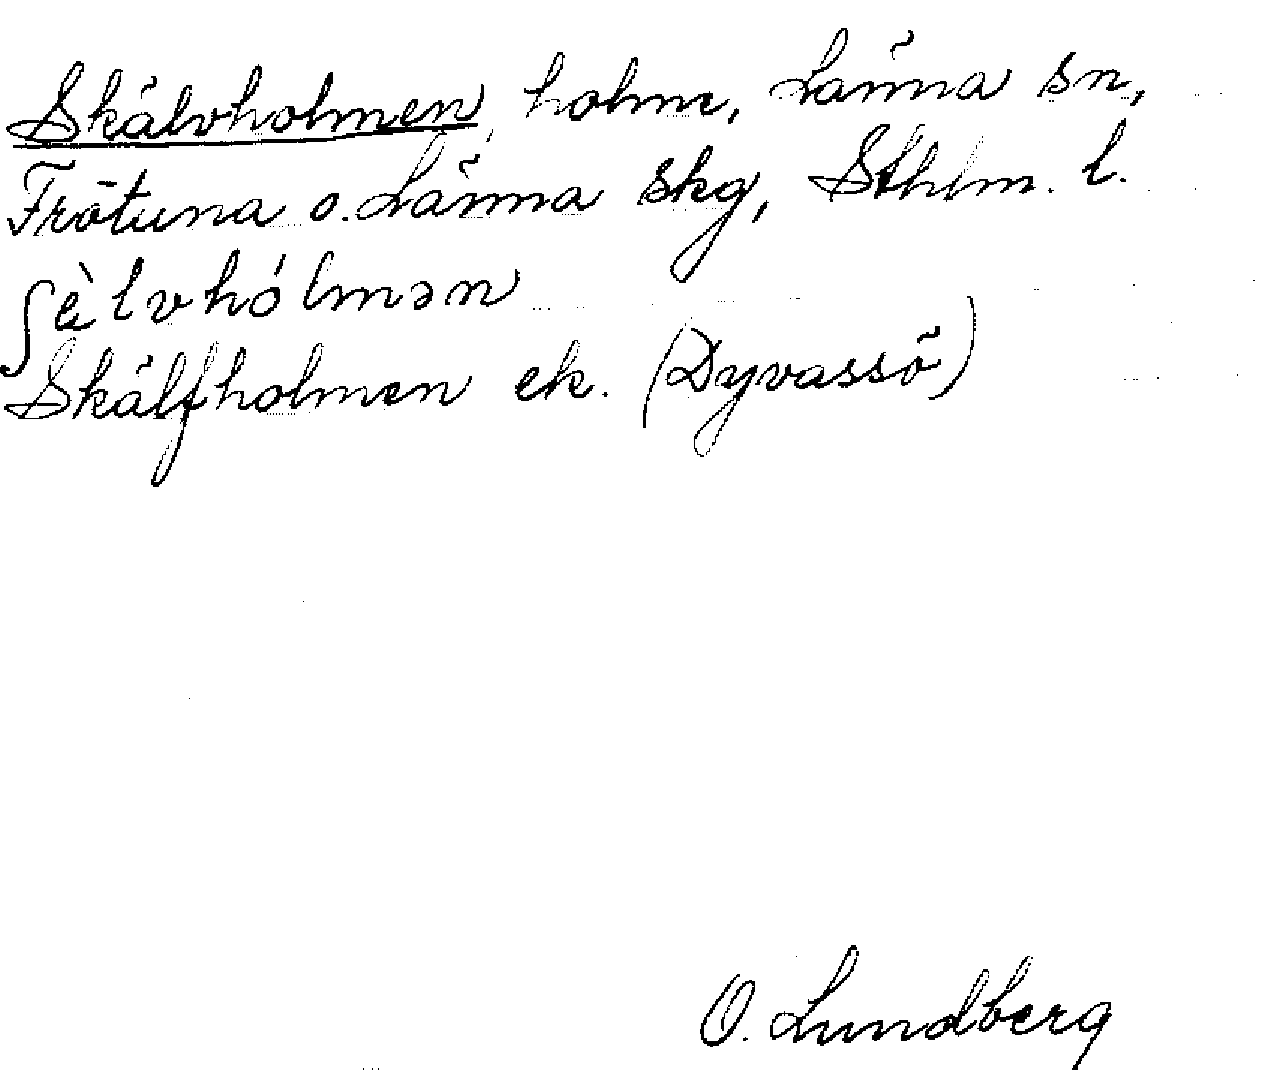 Skälvholmen, holme, Länna sn,
Frötuna o. Länna skg, Sthlm. l.
ʃèlvhólmən
Skälfholmen ek. (Dyvassö)
O. Lundberg